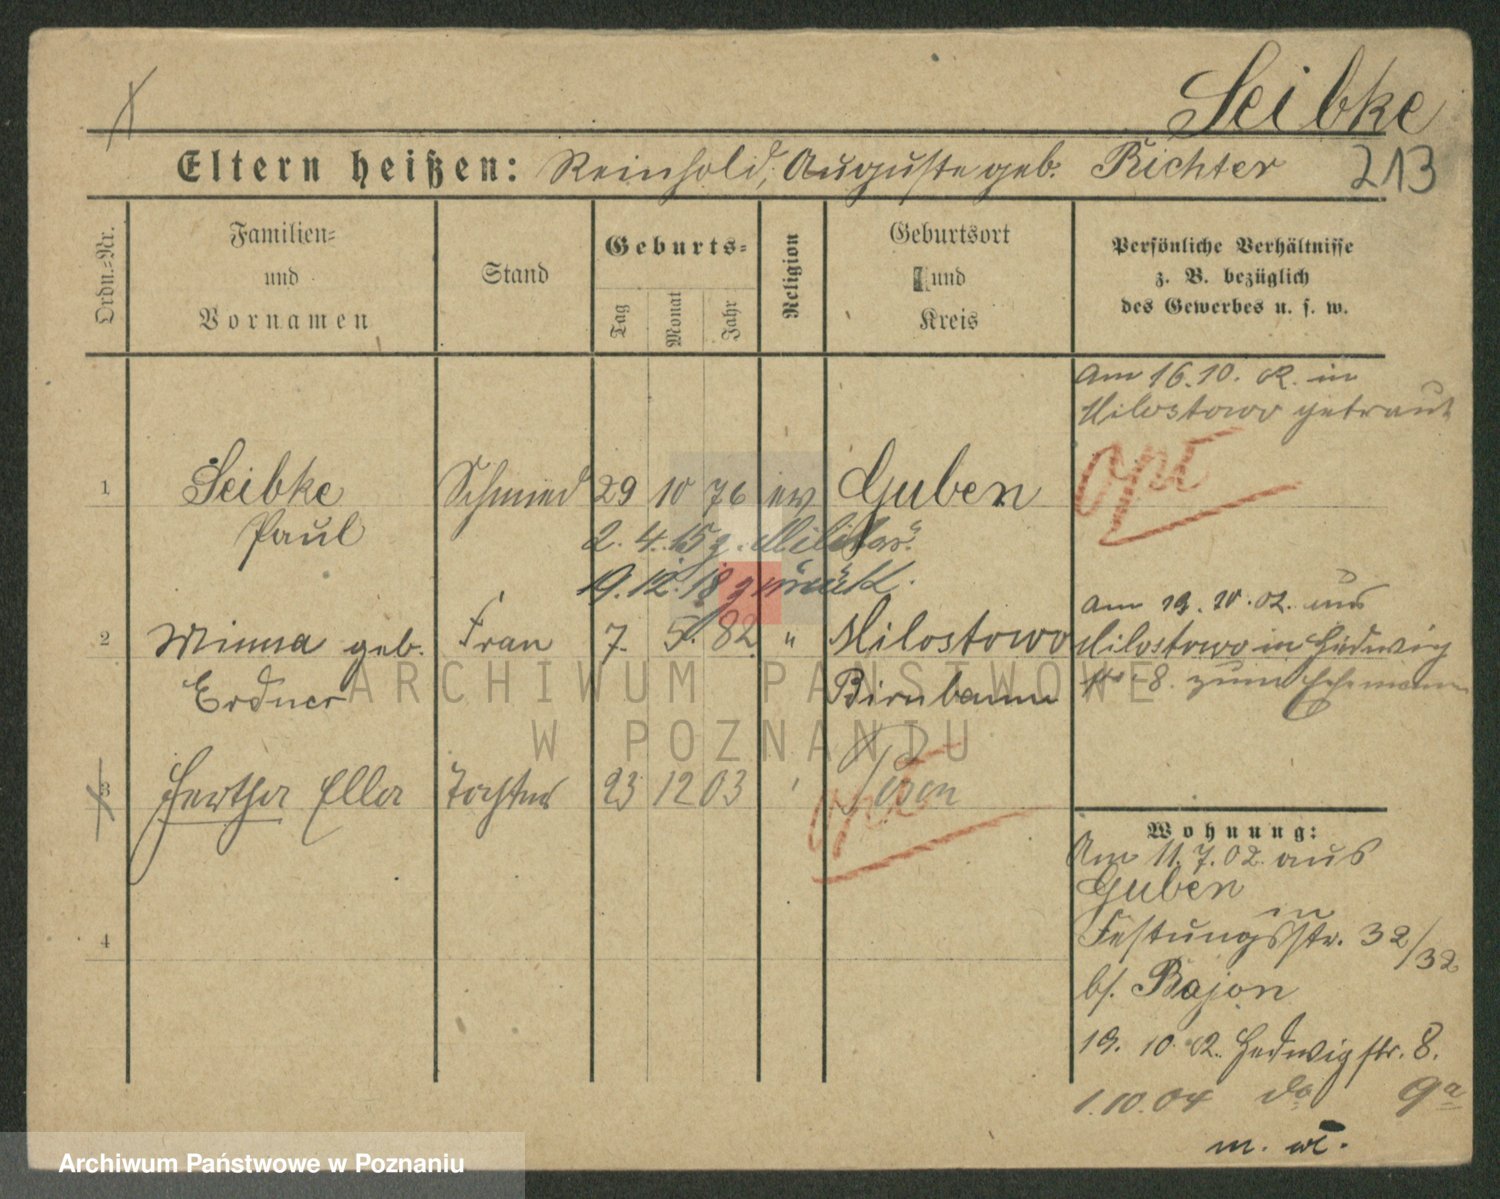 Seibke
Eltern heißen: Reinhold, Auguste geb. Richter 213
Ordn.-Nr.
Familien-
und
Vornamen
Stand
Geburts-
Tag
Monat
Jahr
Religion
Geburtsort
und
Kreis
Persönliche Verhältnisse
z. B. bezüglich
des Gewerbes u. s. w.
Am 16.10.02. in
Milostowo getraut
1 Seibke Schmied 29 10 76 ev Guben
Paul
2. 4. 15 z. Militär.
19. 12. 18 zurück.
2 Minna geb. Frau 7. 5. 82 " Milostowo
Erdner Birnbaum
Am 19. 10. 02. aus
Milostowo in Hedwig
str. 8. zum Ehemann
3 Hertha Ella Tochter 23 12 03 ' Posen
4
Wohnung:
Am 11. 7. 02. aus
Guben
in
Festungsstr. 32/32
b/. Bajon
19. 10 02. Hedwigstr. 8.
1.10.04 do 9a
ARCHIWUM PAŃSTWOWE
W POZNANIU
Archiwum Państwowe w Poznaniu